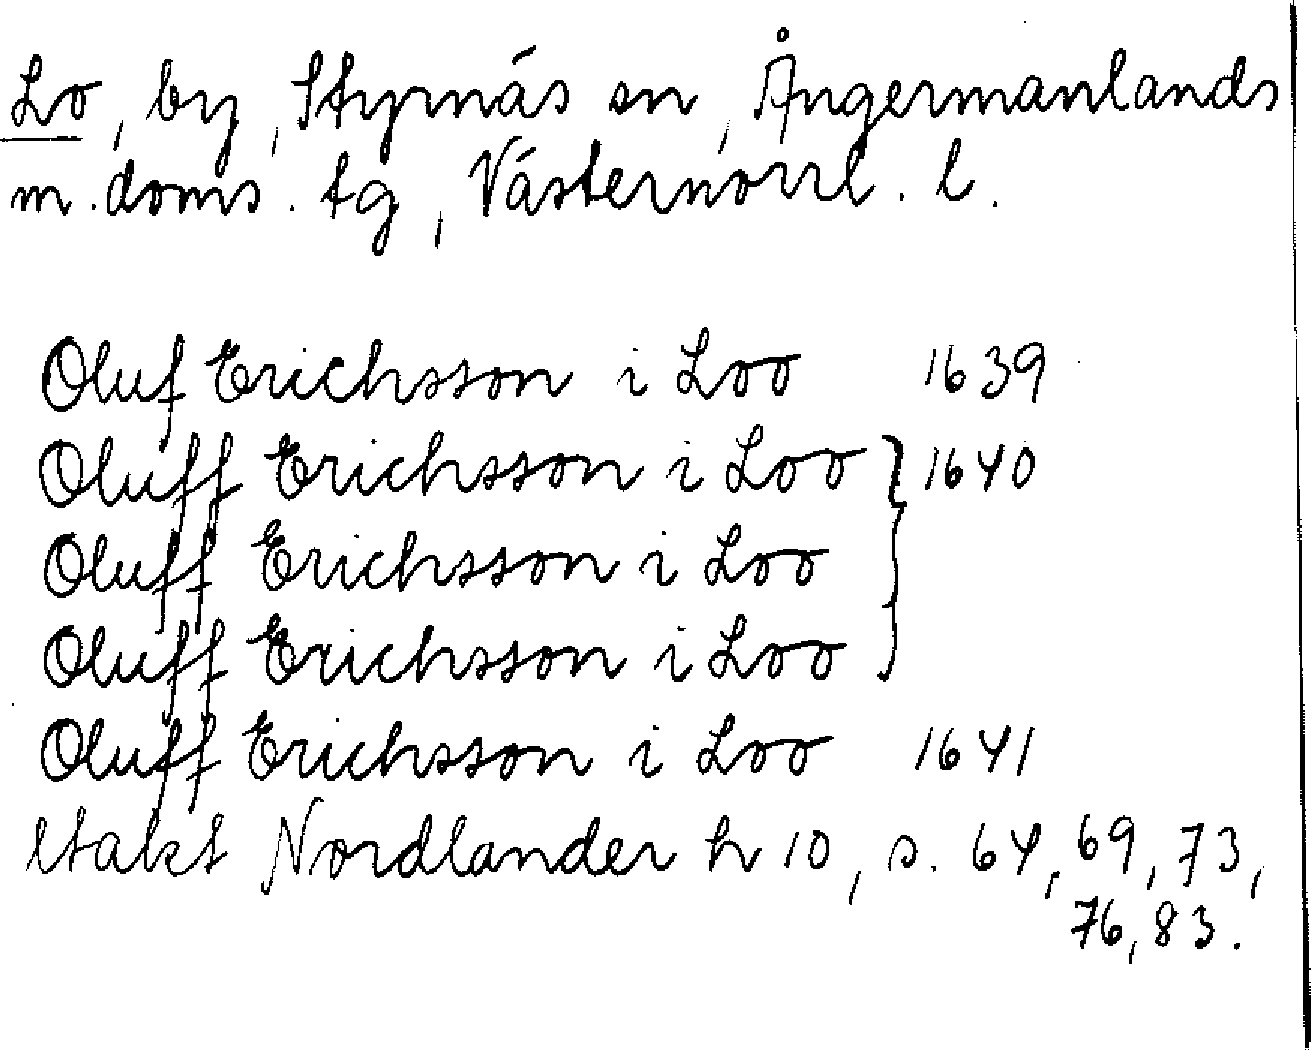 Lo, by, Styrnäs sn, Ångermanlands
m. doms. tg, Västernorrl. l.
Oluf Erichsson i Loo 1639
Oluff Erichsson i Loo } 1640
Oluff Erichsson i Loo
Oluff Erichsson i Loo
Oluff Erichsson i Loo 1641
Nordlander h 10, s. 64, 69, 73,
76, 83.